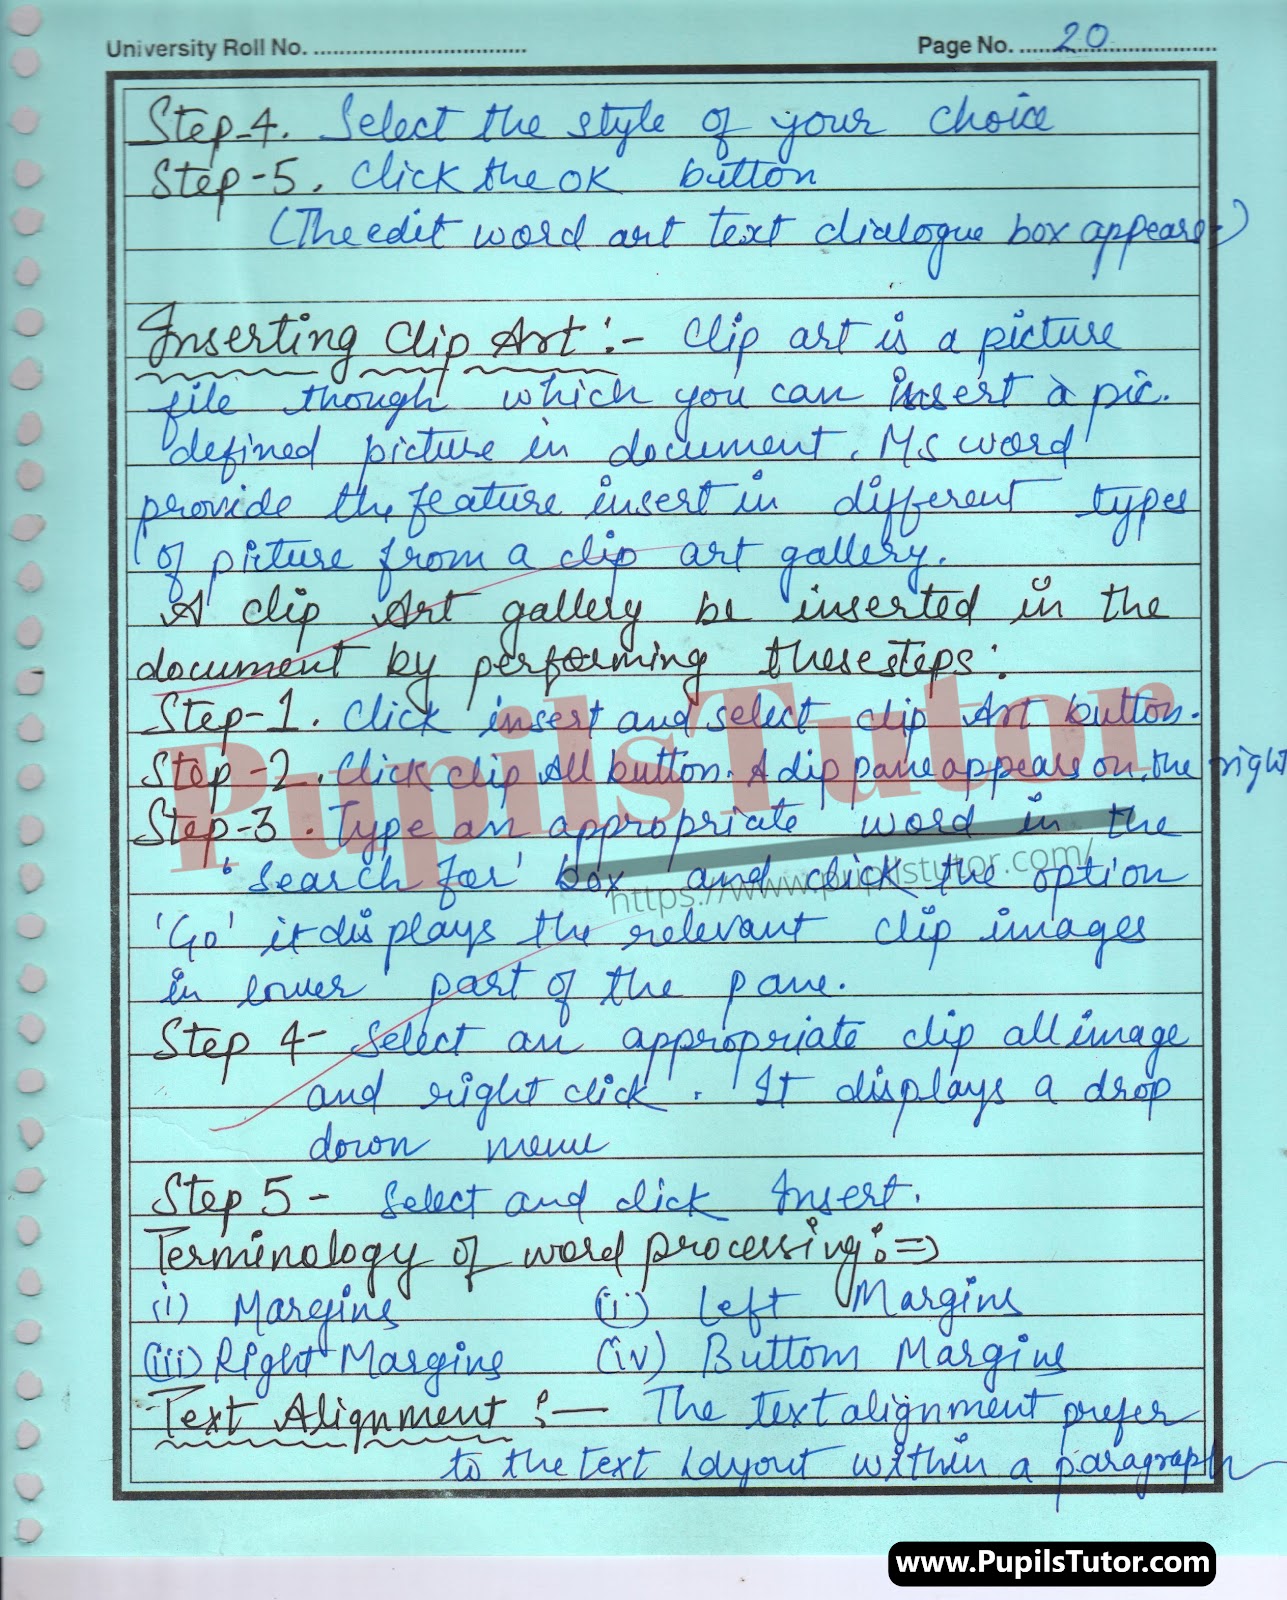 University Roll No. ................................ Page No. ....20....
Step-4. Select the style of your choice
Step-5. Click the OK button
(The edit word art text dialogue box appears.)
Inserting Clip Art :- Clip art is a picture
file though which you can insert a pic.
defined picture in document. MS word
provide the feature insert in different types
of picture from a clip art gallery.
A clip Art gallery be inserted in the
document by performing these steps:
Step-1. Click insert and select clip Art button.
Step-2. Click clip All button. A clip pane appears on the right
Step-3. Type an appropriate word in the
'Search for' box and click the option
'Go' it displays the relevant clip images
in lower part of the pane.
Step 4- Select an appropriate clip all image
and right click. It displays a drop
down menu
Step 5- Select and click Insert.
Terminology of word processing :=>
(i) Margins (ii) Left Margins
(iii) Right Margins (iv) Buttom Margins
Text Alignment :— The text alignment prefer
to the text layout within a paragraph
PupilsTutor
https://www.pupilstutor.com/
www.PupilsTutor.com